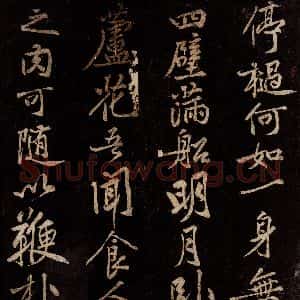 停何如一身無
四壁滿船明月卧
蘆花吾聞食人
之肉可隨以鞭朴
Shufawang.CN